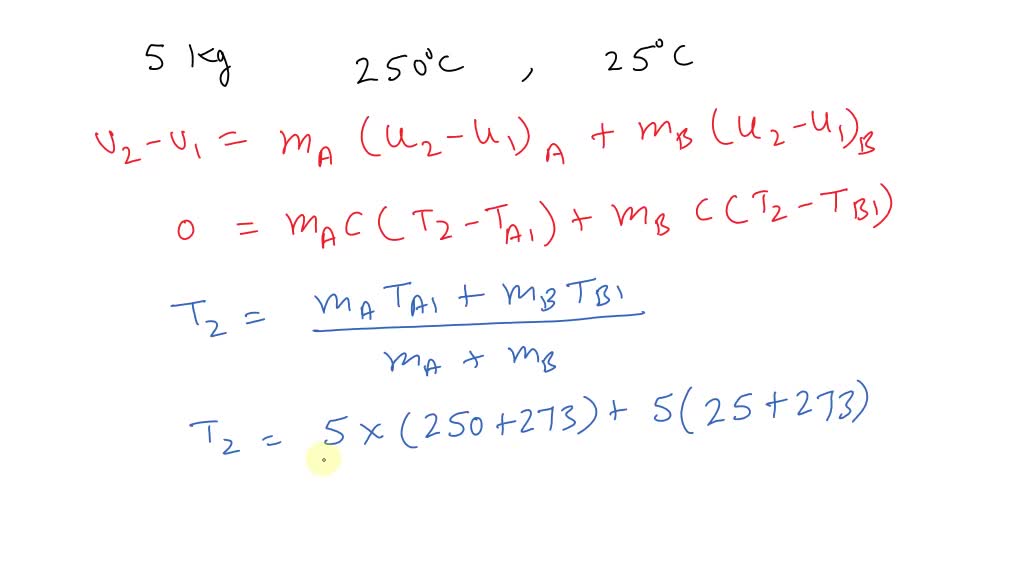 5 kg 250°C , 25°C
U₂-U₁ = m_A (u₂-u₁)_A + m_B (u₂-u₁)_B
0 = m_A C (T₂-T_A₁) + m_B C (T₂-T_B₁)
T₂ = m_A T_A₁ + m_B T_B₁
m_A + m_B
T₂ = 5 × (250+273) + 5(25+273)